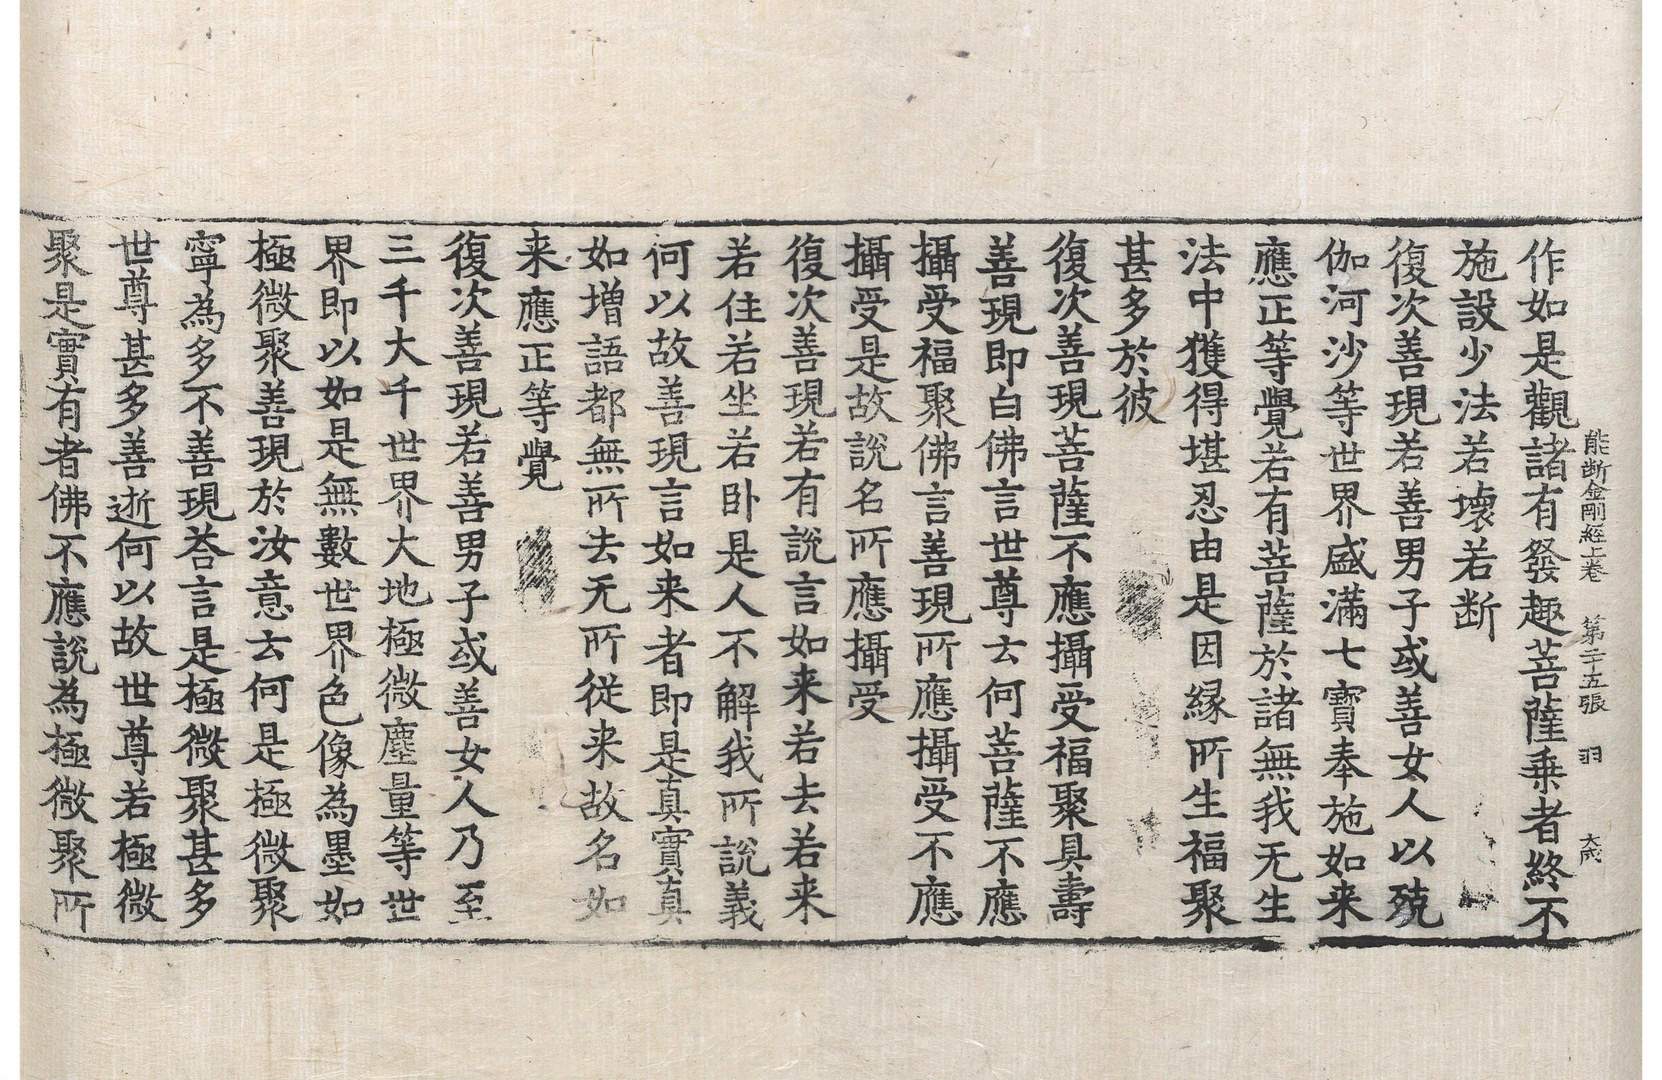 能断金剛經上卷 第二十五張 羽 大成
作如是觀諸有發趣菩薩乗者終不
施設少法若壞若断
復次善現若善男子或善女人以殑
伽河沙等世界盛滿七寶奉施如来
應正等覺若有菩薩於諸無我无生
法中獲得堪忍由是因縁所生福聚
甚多於彼
復次善現菩薩不應攝受福聚具壽
善現即白佛言世尊云何菩薩不應
攝受福聚佛言善現所應攝受不應
攝受是故說名所應攝受
復次善現若有說言如来若去若来
若住若坐若卧是人不解我所說義
何以故善現言如来者即是真實真
如増語都無所去无所從来故名如
来應正等覺
復次善現若善男子或善女人乃至
三千大千世界大地極微塵量等世
界即以如是無數世界色像為墨如
極微聚善現於汝意云何是極微聚
寧為多不善現荅言是極微聚甚多
世尊甚多善逝何以故世尊若極微
聚是實有者佛不應說為極微聚所